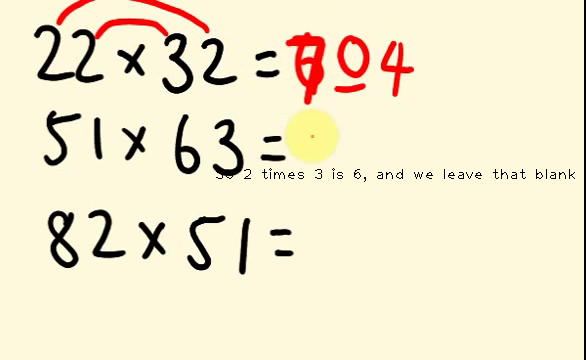 22 × 32 = 704
51 × 63 =
So 2 times 3 is 6, and we leave that blank
82 × 51 =